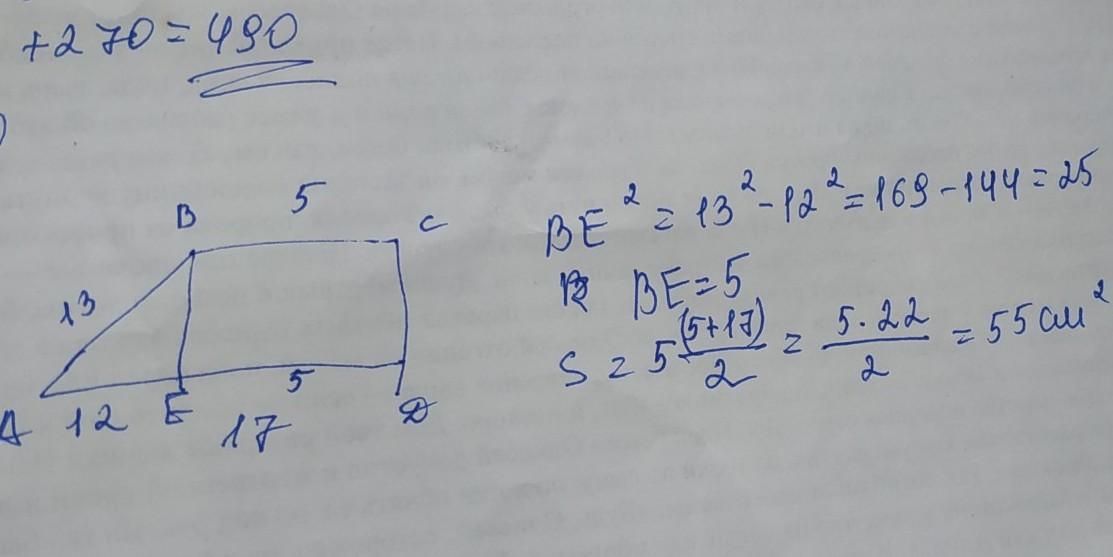 +270=490
)
B 5 C
13
A 12 E 5 D
17
BE² = 13² - 12² = 169 - 144 = 25
BE = 5
S = 5 (5+17)/2 = 5·22/2 = 55 см²